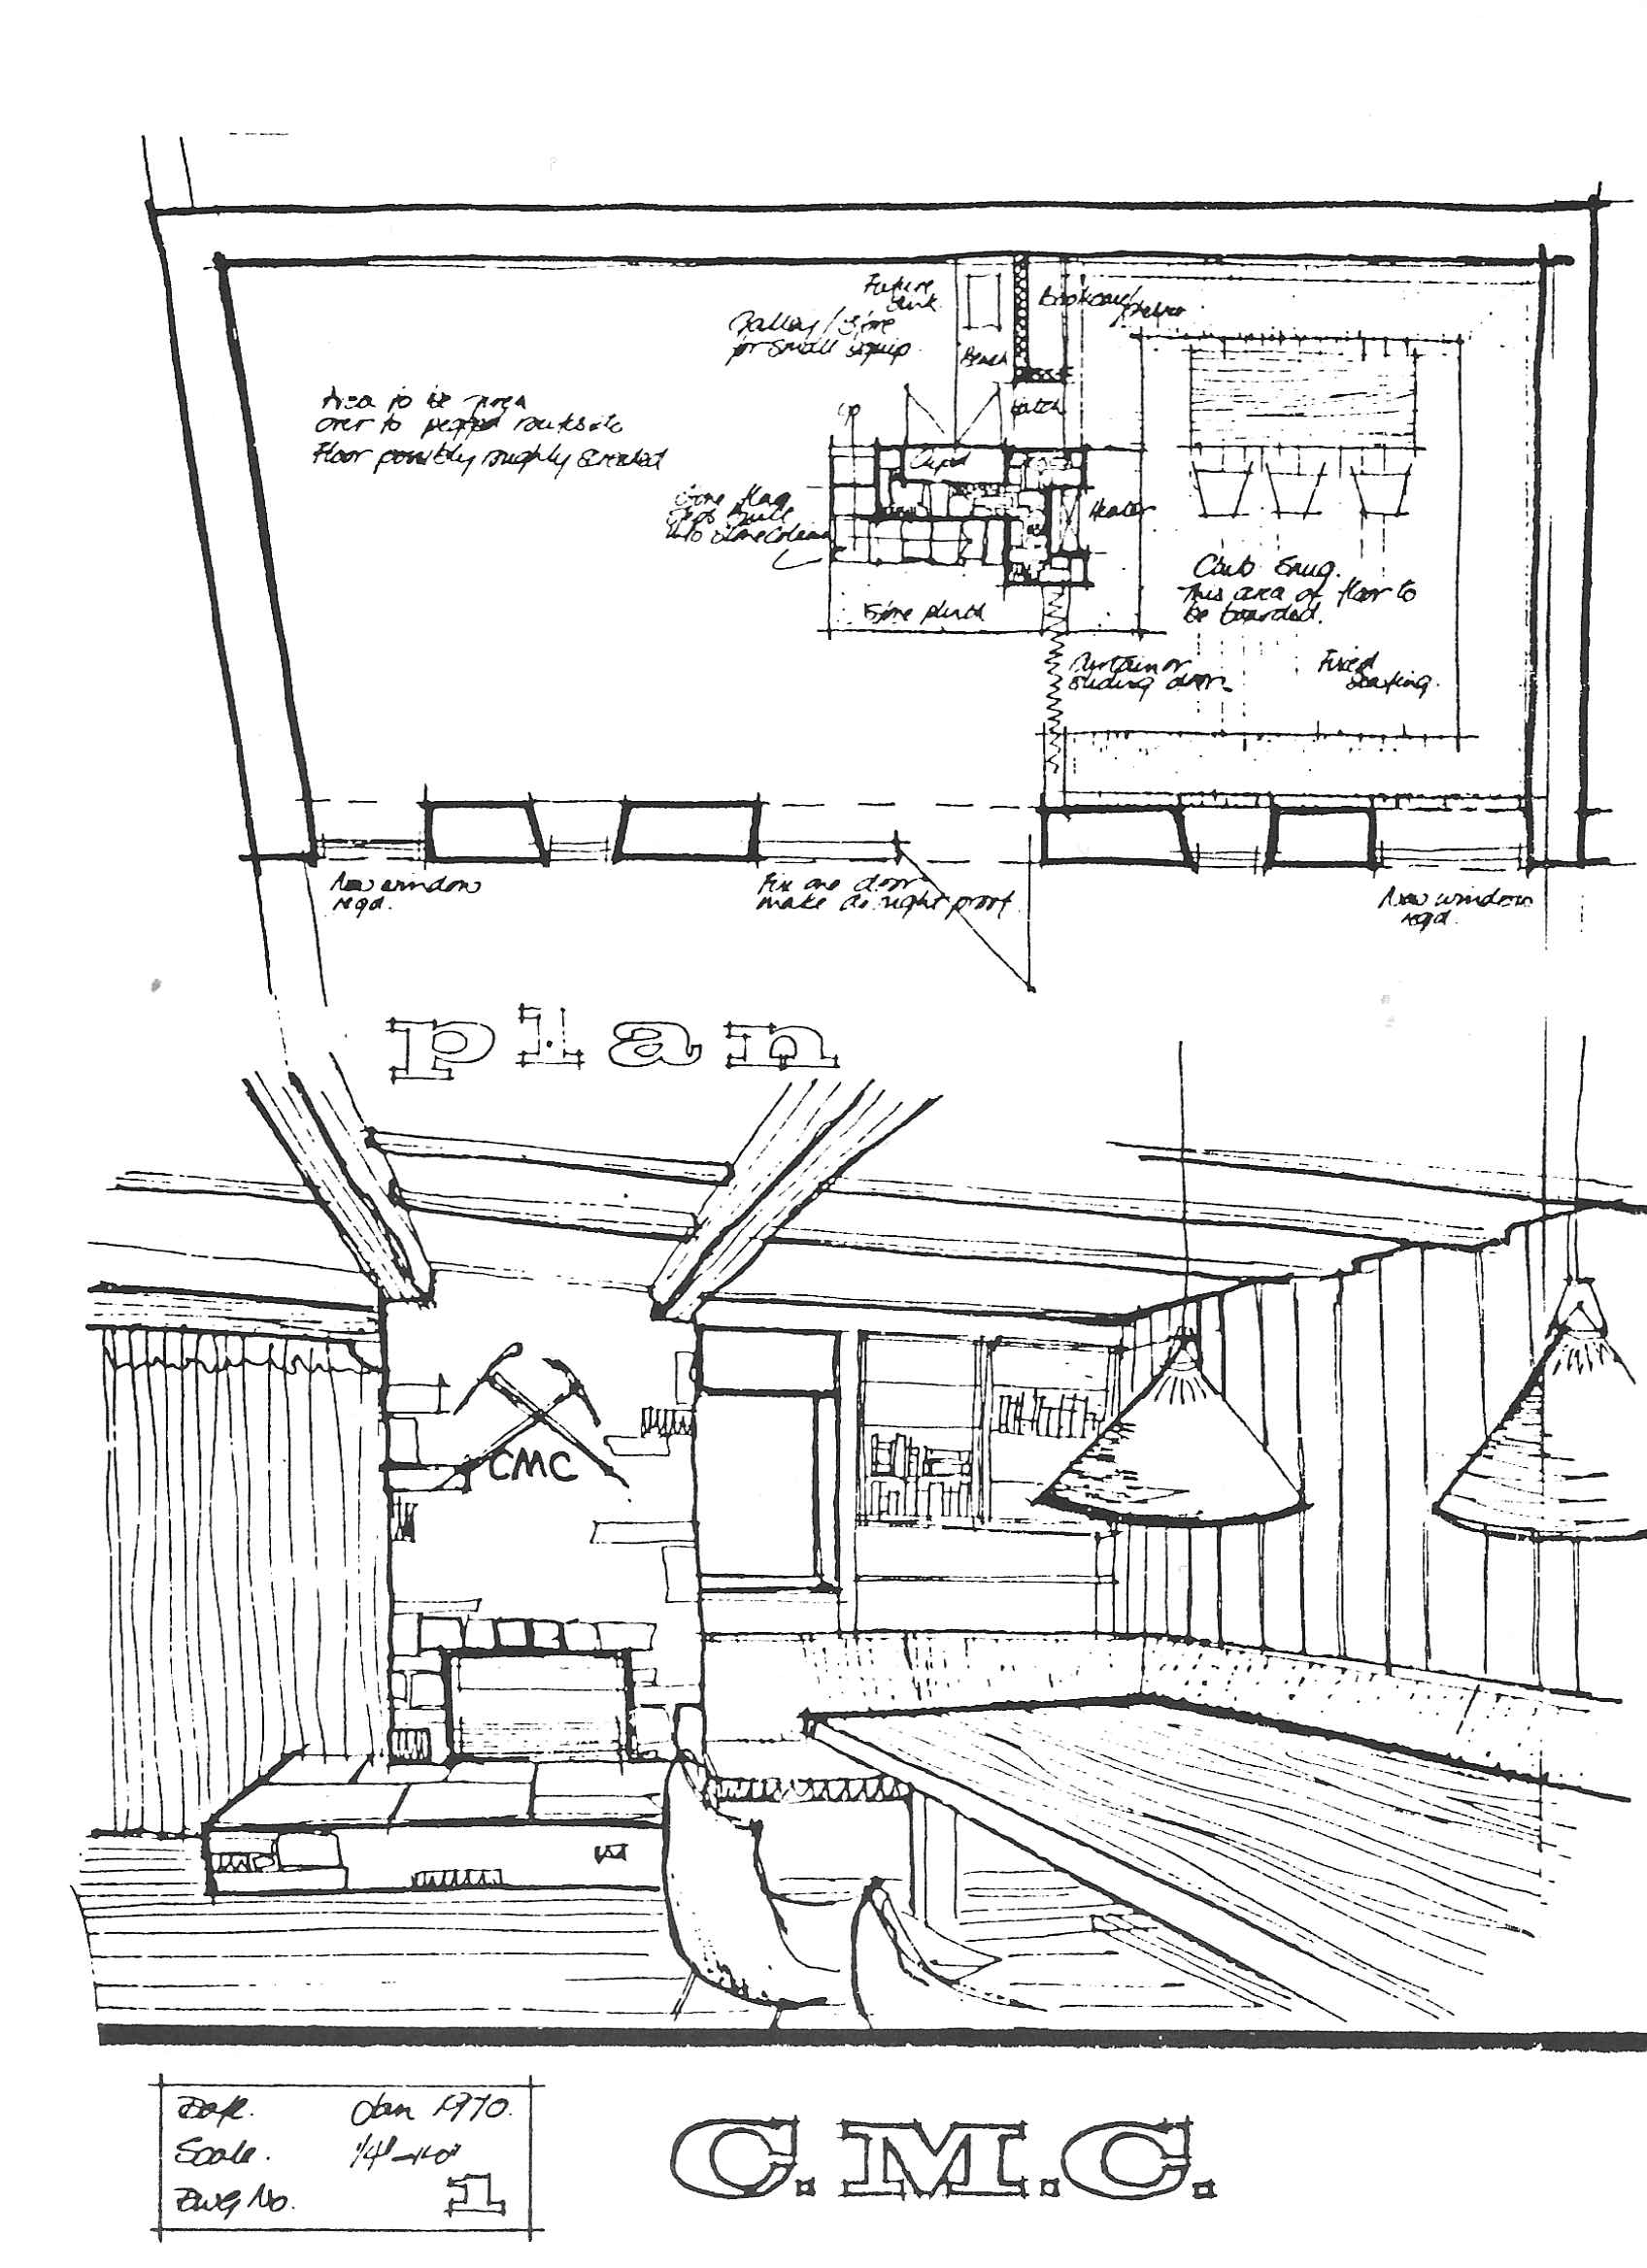 Future
sink
Galley / Store
for small equip.
Bench
Bookcase/
shelves
hatch
up
Area to be
over to
Floor possibly roughly screeded
Cupd
Stone flag
steps built
into stone column
Heater
Club Snug.
This area of floor to
be boarded.
Stone plinth
Curtain or
sliding door
Fixed
seating.
New window
reqd.
Fix one door
make draught proof
New window
reqd.
plan
CMC
Date. Jan 1970.
Scale. 1/4"-1'-0"
Dwg No. 1
C.M.C.